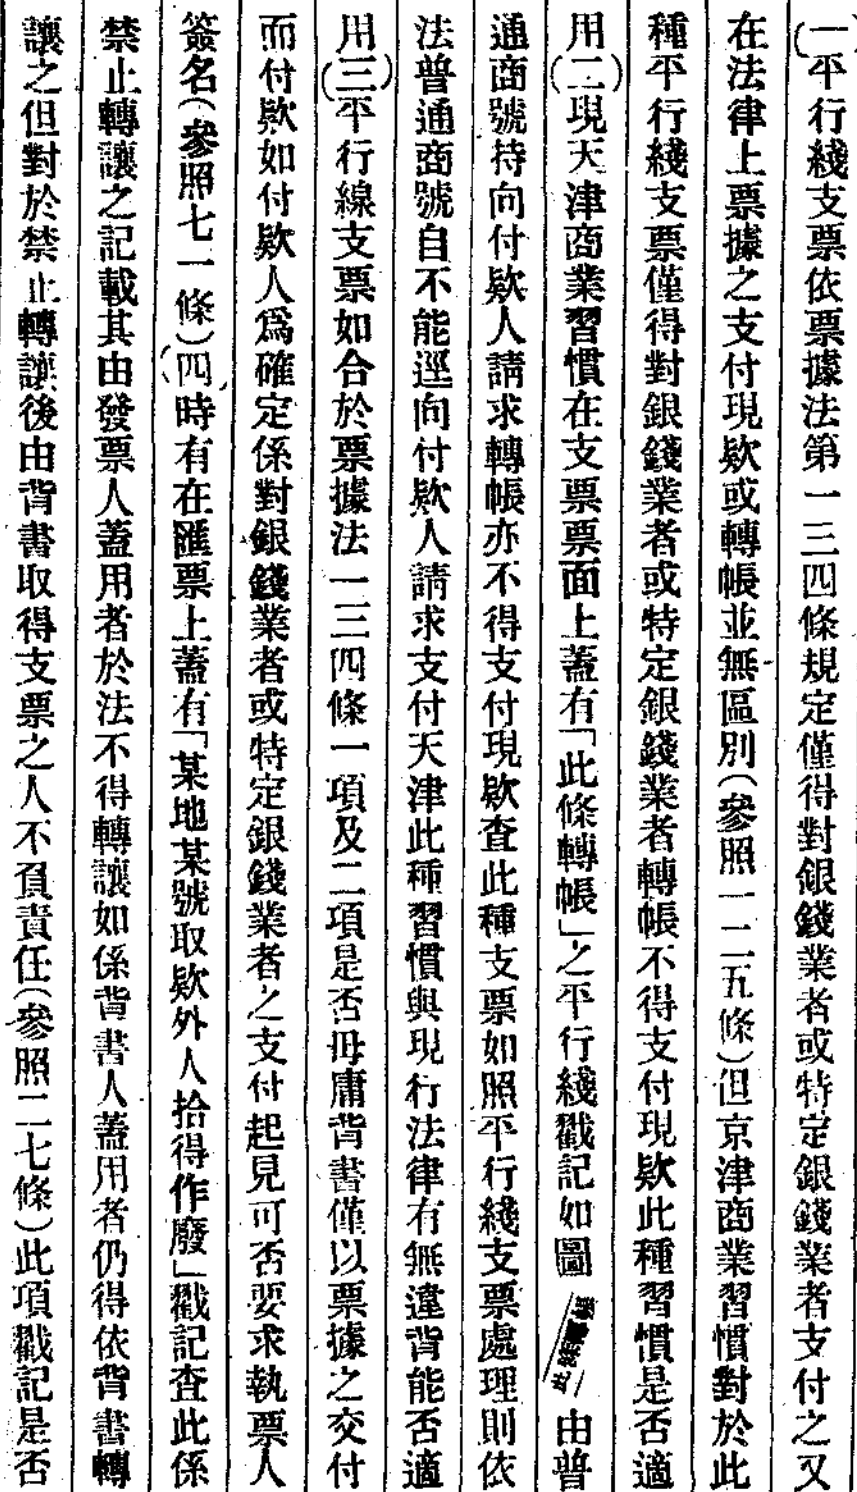 (一)平行綫支票依票據法第一三四條規定僅得對銀錢業者或特定銀錢業者支付之又
在法律上票據之支付現欵或轉帳並無區別(參照一二五條)但京津商業習慣對於此
種平行綫支票僅得對銀錢業者或特定銀錢業者轉帳不得支付現欵此種習慣是否適
用(二)現天津商業習慣在支票票面上蓋有「此條轉帳」之平行綫戳記如圖 此條轉帳 由普
通商號持向付欵人請求轉帳亦不得支付現欵查此種支票如照平行綫支票處理則依
法普通商號自不能逕向付欵人請求支付天津此種習慣與現行法律有無違背能否適
用(三)平行線支票如合於票據法一三四條一項及二項是否毋庸背書僅以票據之交付
而付欵如付欵人爲確定係對銀錢業者或特定銀錢業者之支付起見可否要求執票人
簽名(參照七一條)(四)時有在匯票上蓋有「某地某號取欵外人拾得作廢」戳記查此係
禁止轉讓之記載其由發票人蓋用者於法不得轉讓如係背書人蓋用者仍得依背書轉
讓之但對於禁止轉讓後由背書取得支票之人不負責任(參照二七條)此項戳記是否